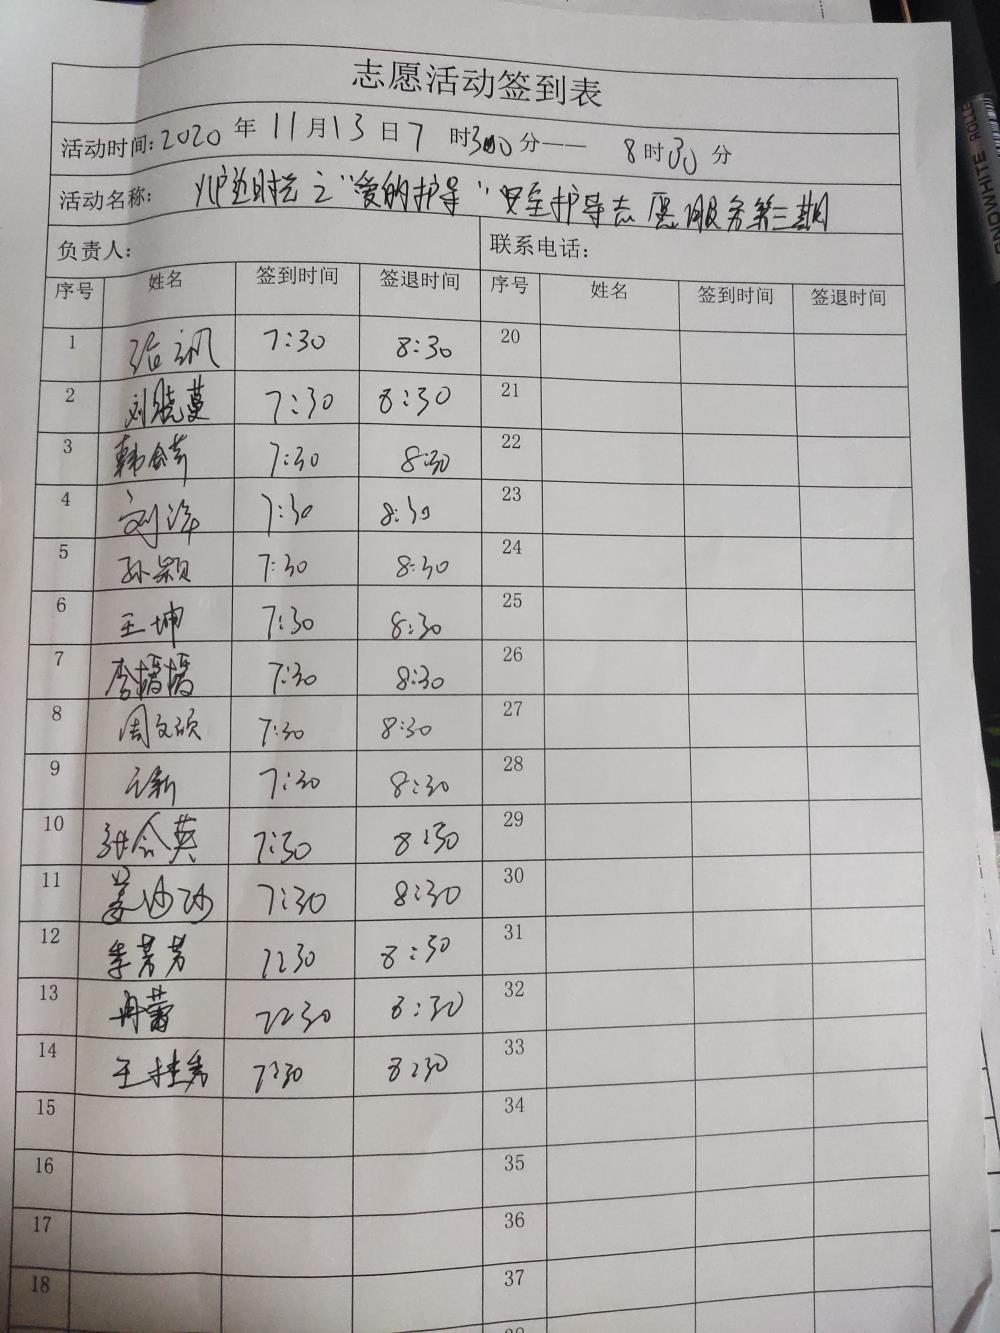 志愿活动签到表
活动时间:2020年11月13日7时30分——8时30分
活动名称: 之"爱的护导"安全护导志愿服务第三期
负责人: 联系电话:
序号 姓名 签到时间 签退时间 序号 姓名 签到时间 签退时间
1 7:30 8:30 20
2 刘晓蔓 7:30 8:30 21
3 韩会芹 7:30 8:30 22
4 刘洋 7:30 8:30 23
5 孙颖 7:30 8:30 24
6 王坤 7:30 8:30 25
7 李 7:30 8:30 26
8 周文硕 7:30 8:30 27
9 新 7:30 8:30 28
10 张会英 7:30 8:30 29
11 姜沙沙 7:30 8:30 30
12 李芳芳 7:30 8:30 31
13 冉蕾 7:30 8:30 32
14 王桂秀 7:30 8:30 33
15 34
16 35
17 36
18 37